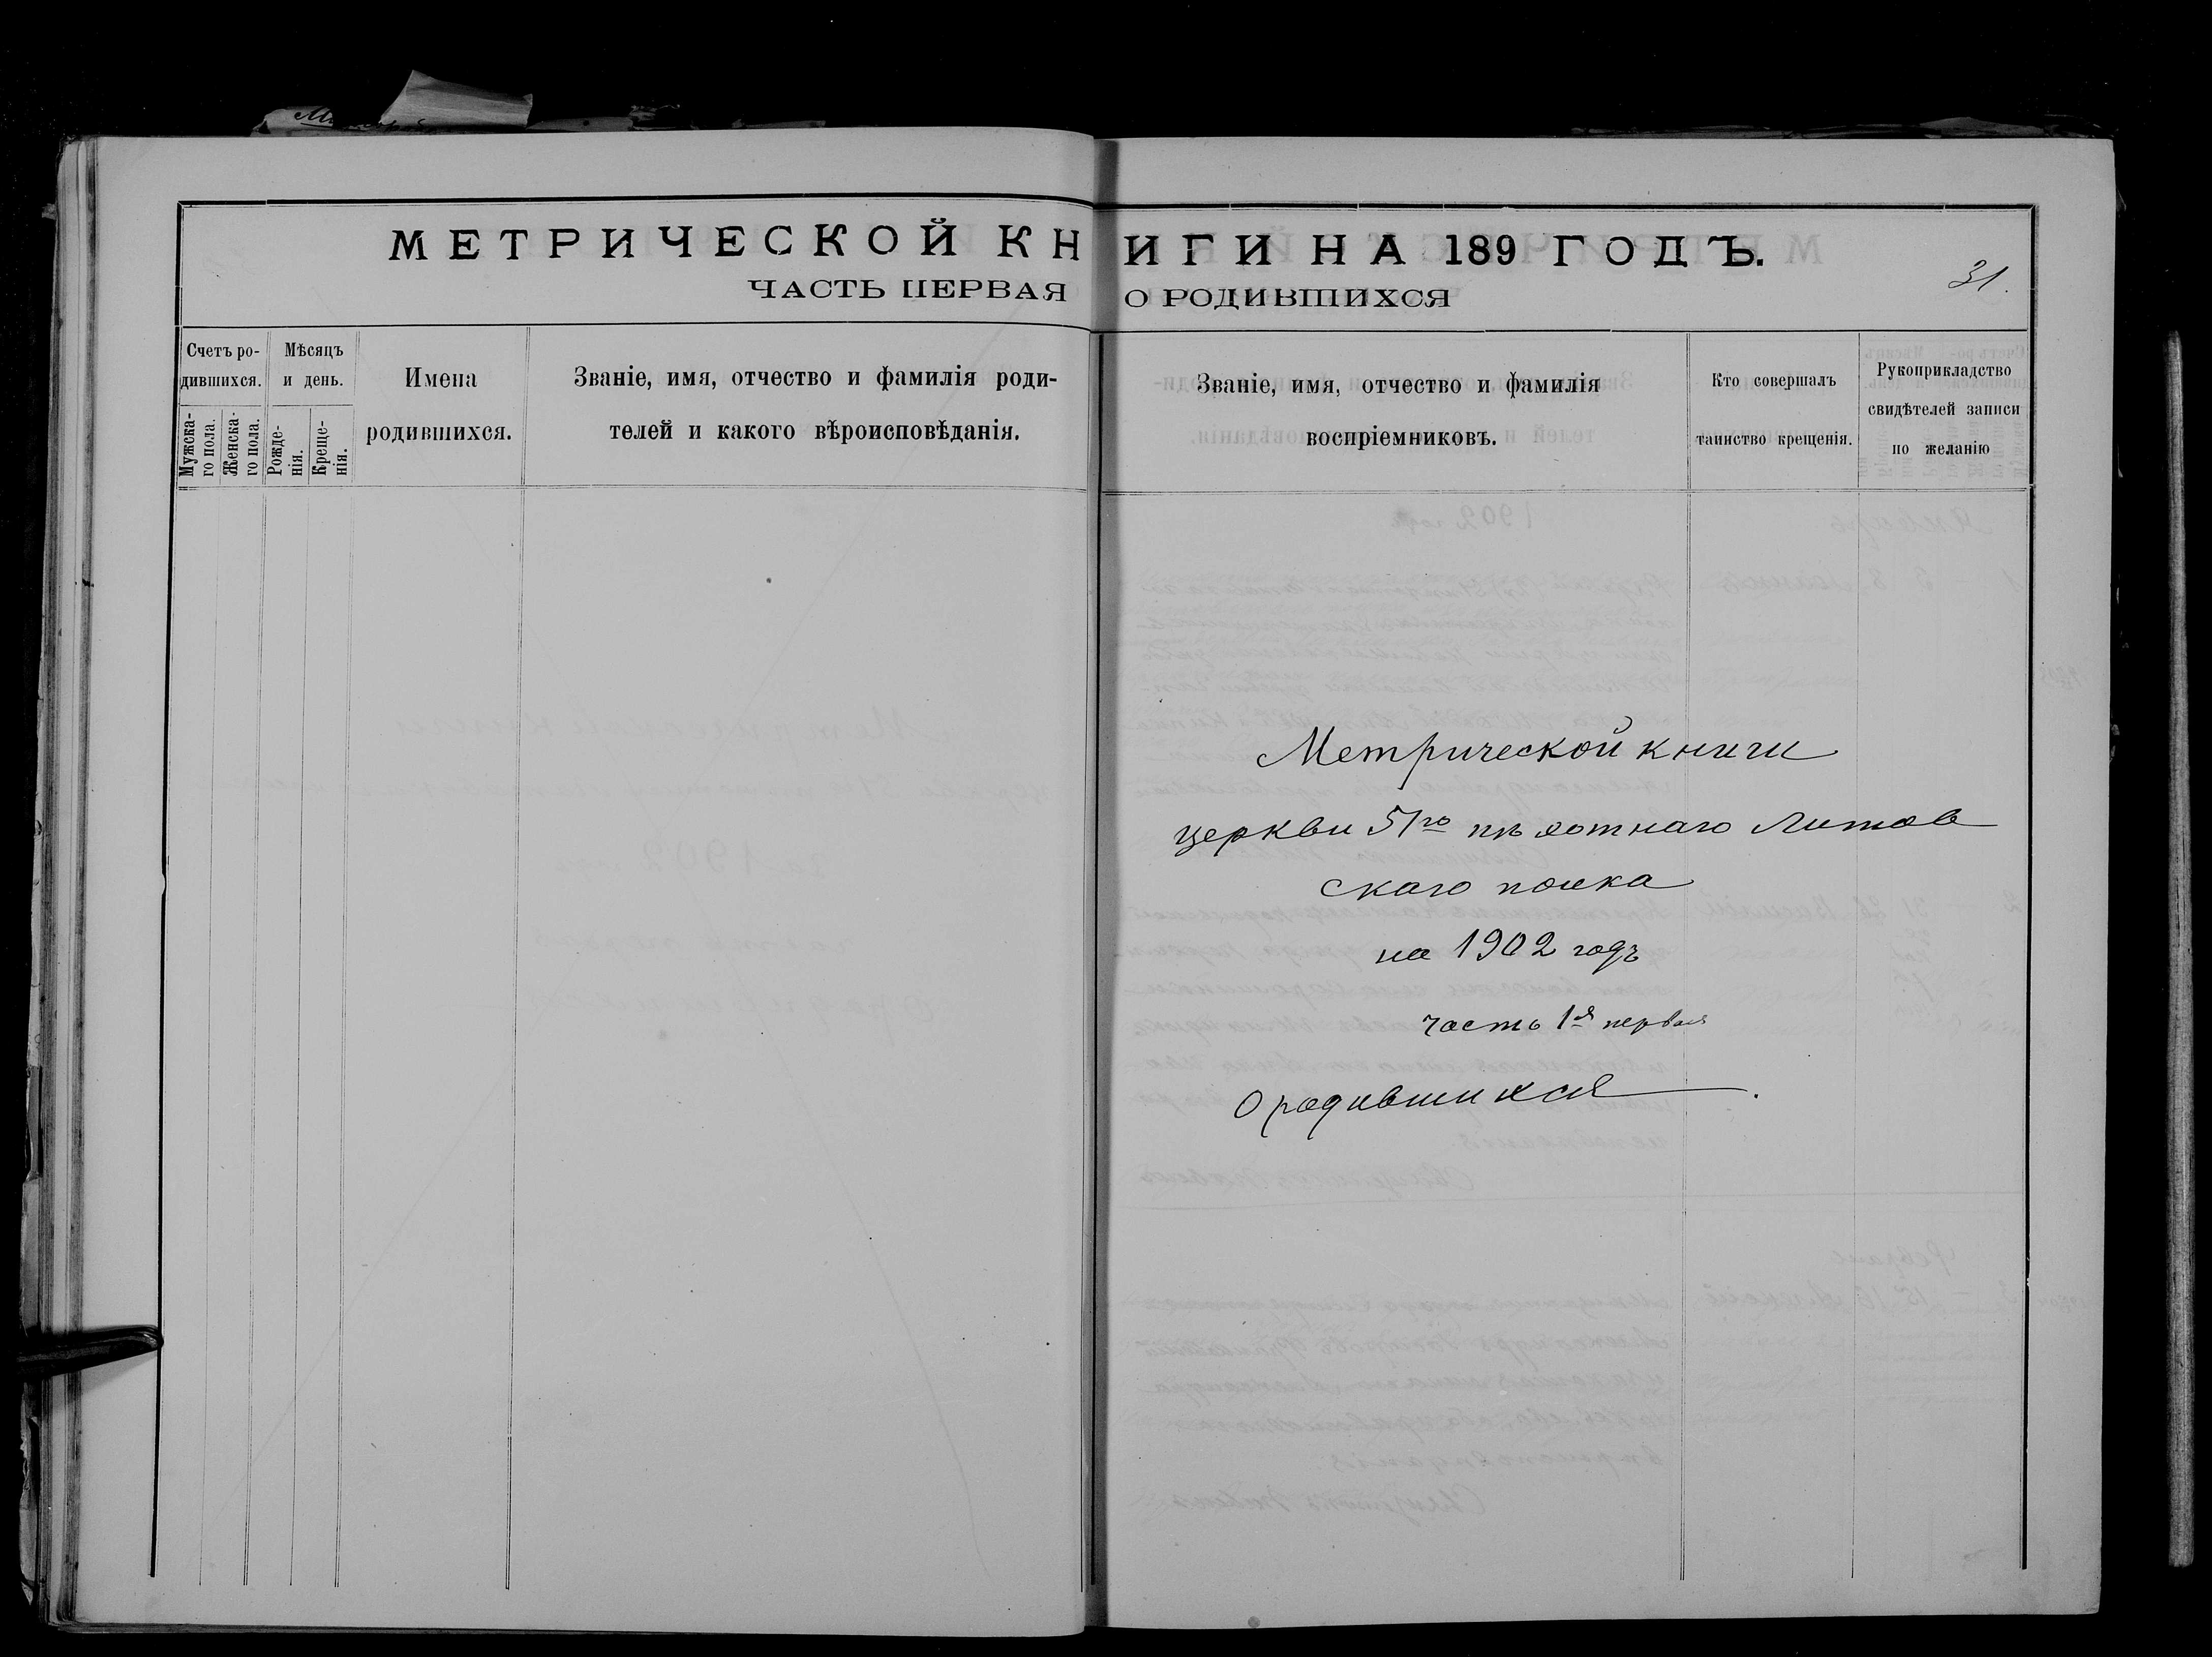 МЕТРИЧЕСКОЙ КНИГИ НА 189 ГОДЪ.
ЧАСТЬ ПЕРВАЯ О РОДИВШИХСЯ
31.
Счетъ ро-
дившихся.
Мужска-
го пола.
Женска-
го пола.
Мѣсяцъ
и день.
Рожде-
нія.
Креще-
нія.
Имена
родившихся.
Званіе, имя, отчество и фамилія роди-
телей и какого вѣроисповѣданія.
Званіе, имя, отчество и фамилія
воспріемниковъ.
Кто совершалъ
таинство крещенія.
Рукоприкладство
свидѣтелей записи
по желанію
Метрической книги
церкви 51го пѣхотнаго Литов
скаго полка
на 1902 годъ
часть 1я первая
О родившихся.